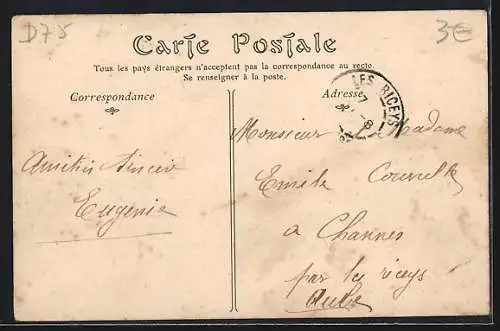 D75
3€
Carte Postale
Tous les pays étrangers n'acceptent pas la correspondance au recto.
Se renseigner à la poste.
Correspondance
Adresse
LES RICEYS
Amitiés Sincère
Eugenie
Monsieur & Madame
Emile
à Channes
par les riceys
Aube